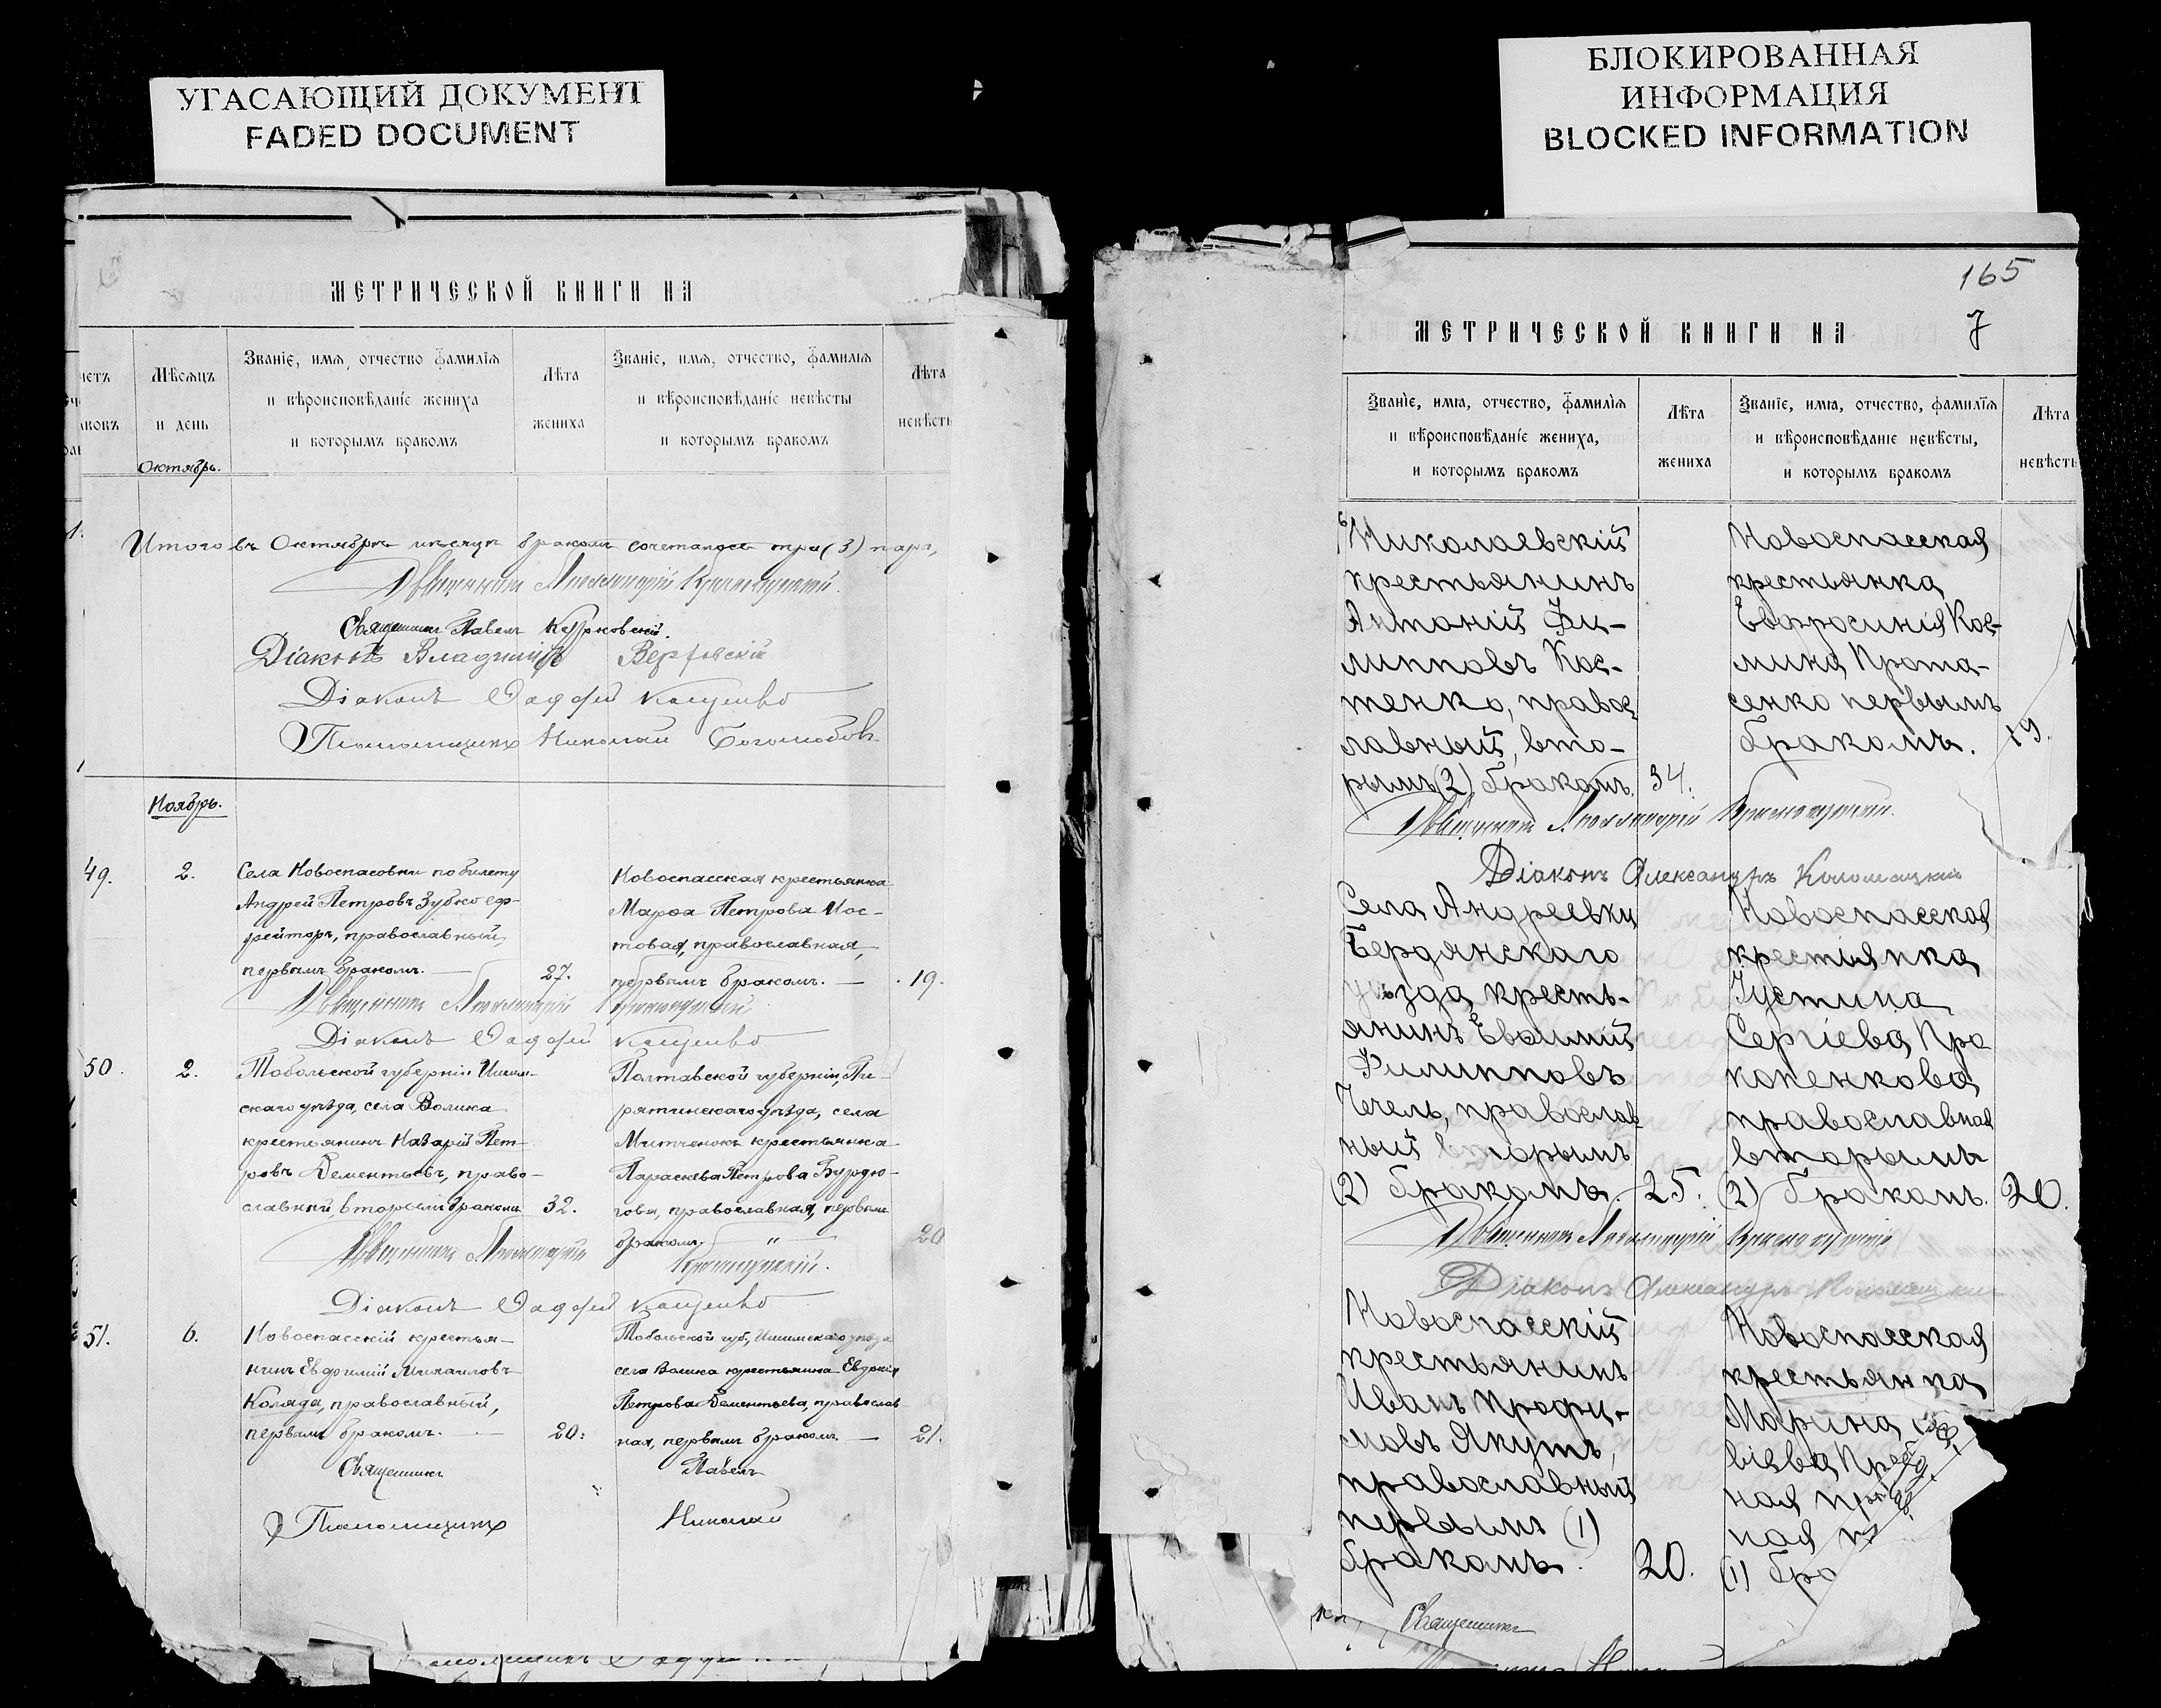 УГАСАЮЩИЙ ДОКУМЕНТ
FADED DOCUMENT
МЕТРИЧЕСКОЙ КНИГИ НА
Мѣсяцъ
и день
Октябрь.
Званіе, имя, отчество фамилія
и вѣроисповѣданіе жениха
и которымъ бракомъ
Лѣта
жениха
Званіе, имя, отчество, фамилія
и вѣроисповѣданіе невѣсты
и которымъ бракомъ
Лѣта
невѣсты
Итого въ Октябрѣ мѣсяцѣ бракомъ сочеталось три (3) пары,
Священникъ
Священникъ Павелъ
Діаконъ Владиміръ
Діаконъ
Псаломщикъ Николай Богомобовъ
Ноябрь.
49.
2.
Села Новоспасовки по билету
Андрей Петровъ Зубко еф-
рейторъ, православный,
первымъ бракомъ. —
27.
Новоспасская крестьянка
Марѳа Петрова Мос-
товая, православная,
первымъ бракомъ. —
19.
Священникъ
Діаконъ
50.
2.
Тобольской губерніи Ишим-
скаго уѣзда, села Волика
крестьянинъ Назарій Пет-
ровъ Дементьевъ, право-
славный, вторымъ бракомъ
32.
Полтавской губерніи, Пи-
рятинскаго уѣзда, села
Митченокъ крестьянка
Параскева Петрова Бурдю-
гова, православная, первымъ
бракомъ. — „ —
20
Священникъ
Діаконъ
51.
6.
Новоспасскій крестья-
нинъ Евфимій Михаиловъ
Коляда, православный,
первымъ бракомъ. —
20.
Тобольской губ., Ишимскаго уѣзда
села Волика крестьянка Евдокія
Петрова Дементьева, православ
ная, первымъ бракомъ. —
21.
Священникъ Павелъ
Псаломщикъ Николай
БЛОКИРОВАННАЯ
ИНФОРМАЦИЯ
BLOCKED INFORMATION
165
7
МЕТРИЧЕСКОЙ КНИГИ НА
Званіе, имя, отчество, фамилія
и вѣроисповѣданіе жениха,
и которымъ бракомъ
Лѣта
жениха
Званіе, имя, отчество, фамилія
и вѣроисповѣданіе невѣсты,
и которымъ бракомъ
Лѣта
невѣсты
Николаевскій
крестьянинъ
Антоній Фи-
липповъ Кос-
тенко, правос
лавный, вто-
рымъ (2) бракомъ.
34.
Новоспасская
крестьянка
Евфросинія Кос-
мина Прота-
сенко первымъ
бракомъ.
19.
Священникъ
Діаконъ Александръ Коломацкій
Села Андреевки
Бердянскаго
уѣзда, кресть-
янинъ Евфимій
Филипповъ
Чечель, православ
ный вторымъ
(2) бракомъ.
25.
Новоспасская
крестьянка
Іустина
Сергіева Про
копенкова
православная
вторымъ
(2) бракомъ.
20.
Священникъ
Діаконъ Александръ Коломацкій
Новоспасскій
крестьянинъ
Иванъ Трофи-
мовъ Якутъ,
православный
первымъ (1)
бракомъ.
20.
Новоспасская
крестьянка
Марина
ная
(1) бра
Священникъ